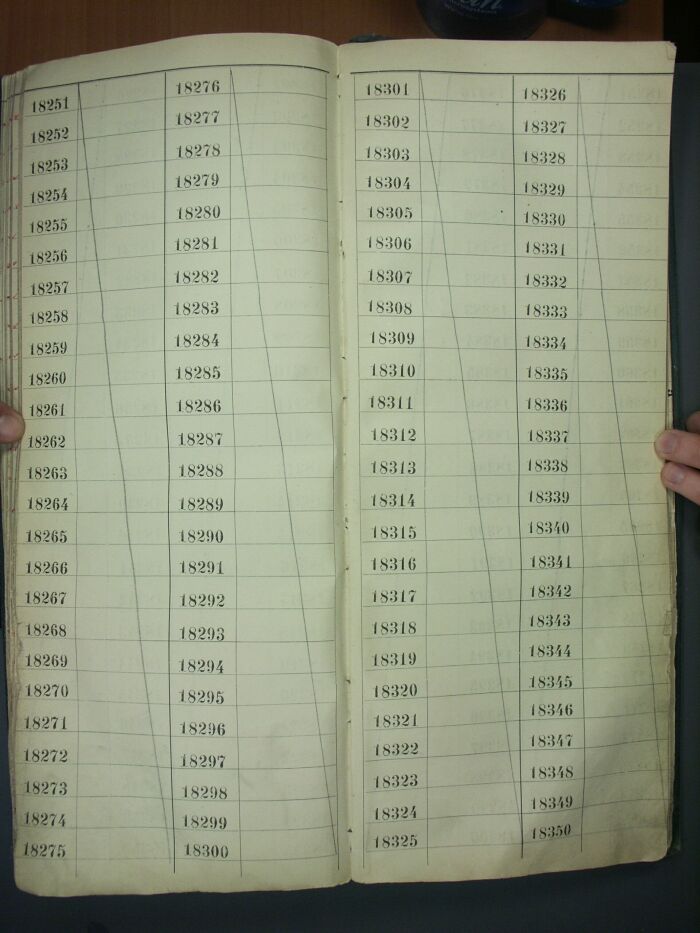 18251
18252
18253
18254
18255
18256
18257
18258
18259
18260
18261
18262
18263
18264
18265
18266
18267
18268
18269
18270
18271
18272
18273
18274
18275
18276
18277
18278
18279
18280
18281
18282
18283
18284
18285
18286
18287
18288
18289
18290
18291
18292
18293
18294
18295
18296
18297
18298
18299
18300
18301
18302
18303
18304
18305
18306
18307
18308
18309
18310
18311
18312
18313
18314
18315
18316
18317
18318
18319
18320
18321
18322
18323
18324
18325
18326
18327
18328
18329
18330
18331
18332
18333
18334
18335
18336
18337
18338
18339
18340
18341
18342
18343
18344
18345
18346
18347
18348
18349
18350